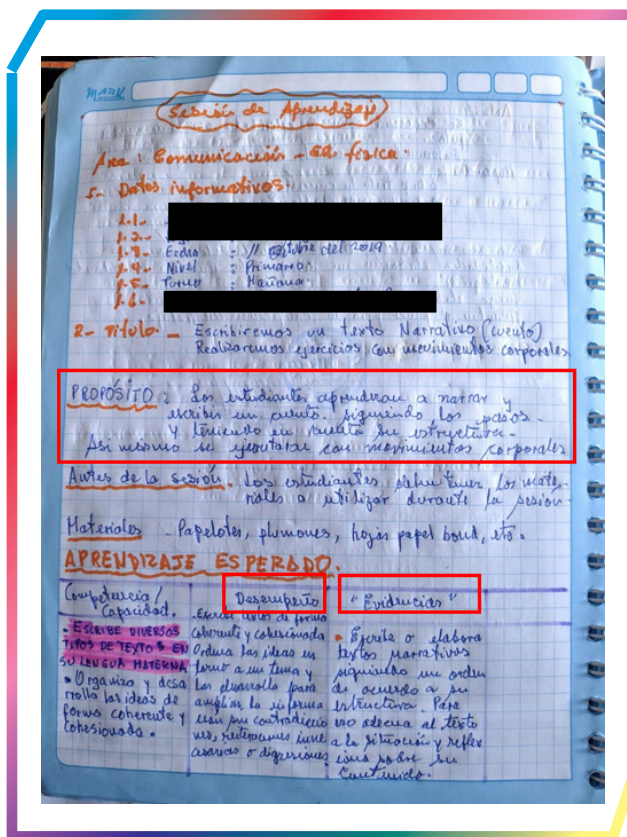 MARK
Sesión de Aprendizaje
Area : Comunicación - Ed. física.
Datos informativos.
1.1-
1.2-
1.3- Fecha : 11 octubre del 2019
1.4- Nivel : Primaria.
1.5- Turno : Mañana.
1.6-
2- Título. - Escribiremos un texto Narrativo (cuento)
Realizaremos ejercicios con movimientos corporales
PROPÓSITO : Los estudiantes aprenderan a narrar y
escribir un cuento. siguiendo los pasos.
y teniendo en cuenta su estructura.
Asi mismo se ejecutaran con movimientos corporales
Antes de la sesión. Los estudiantes deben tener los mate-
riales a utilizar durante la sesión.
Materiales - Papelotes, plumones, hojas papel bond, etc.
APRENDIZAJE ESPERADO.
Competencia /
Capacidad.
- ESCRIBE DIVERSOS
TIPOS DE TEXTOS EN
SU LENGUA MATERNA
• Organiza y desa
rrolla las ideas de
forma coherente y
cohesionada.
Desempeño
Escribe textos de forma
coherente y cohesionada
Ordena las ideas en
torno a un tema y
las desarrolla para
ampliar la informa
ción sin contradiccio
nes, reiteraciones inne
cesarias o digresiones
"Evidencias"
• Escribe o elabora
textos narrativos
siguiendo un orden
de acuerdo a su
estructura. Para
adecua al texto
a la situación y reflex
iona sobre su
Contenido.